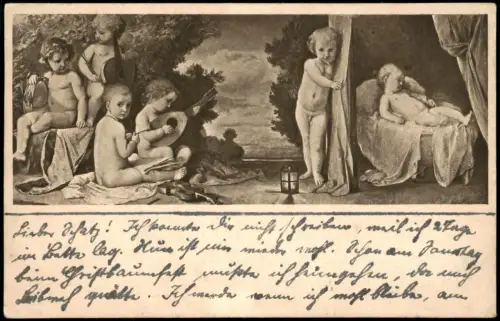 Lieber Schatz! Ich konnte dir nicht schreiben, weil ich 2 Tage
im Bette lag. Nun ist mir wieder wohl. Schon am Samstag
beim Christbaumfest mußte ich heimgehen, da mich
Leibweh quälte. Ich werde wenn ich wohl bleibe, am